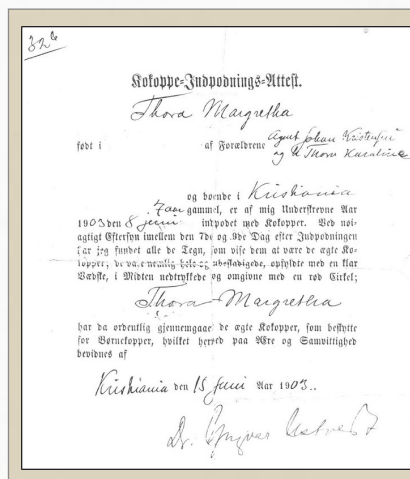 32
Kokoppe-Indpodnings-Attest.
Thora Margretha
født i af Forældrene Agent Johan Kristensen
og Thora Karoline
og boende i Kristiania
7 aar gammel, er af mig Underskrevne Aar
1903 den 8 juni indpodet med Kokopper. Ved nøi-
agtigt Eftersyn imellem den 7de og 9de Dag efter Indpodningen
har jeg fundet alle de Tegn, som vise dem at være de ægte Ko-
kopper; de vare nemlig hele og ubeskadigede, opfyldte med en klar
Vædske, i Midten nedtrykkede og omgivne med en rød Cirkel;
Thora Margretha
har da ordentlig gjennemgaaet de ægte Kokopper, som beskytte
for Børnekopper, hvilket herved paa Ære og Samvittighed
bevidnes af
Kristiania den 15 Juni Aar 1903.
Dr. Yngvar